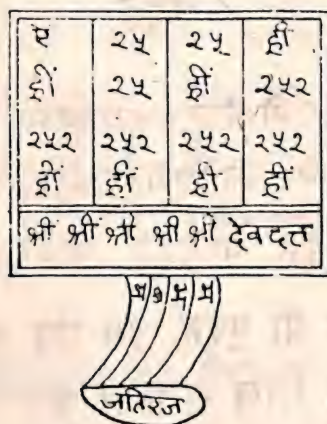 ए २५ २५ ह्रीं
ह्रीं २५ ह्रीं २५२
२५२ २५२ २५२ २५२
ह्रीं ह्रीं ह्रीं ह्रीं
श्रीं श्रीं श्रीं श्रीं श्रीं देवदत्त
जतिरज